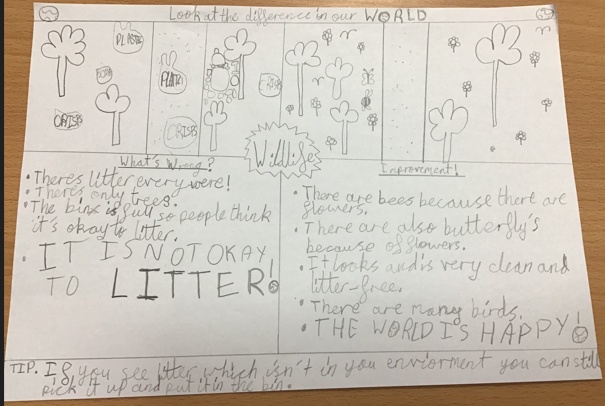 Look at the difference in our WORLD
PLASTIC
CRISPS
PLASTIC
CRISPS
CRISPS
Wildlife
What's Wrong?
• Theres litter every were!
• There's only trees.
• The bins is full so people think
it's okay to litter.
• IT IS NOT OKAY
TO LITTER!
Improvement!
• There are bees because there are
flowers.
• There are also butterfly's
because of flowers.
• It looks and is very clean and
litter-free.
• There are many birds.
• THE WORLD IS HAPPY!
TIP. If you see litter which isn't in you enviorment you can still
pick it up and put it in the bin.